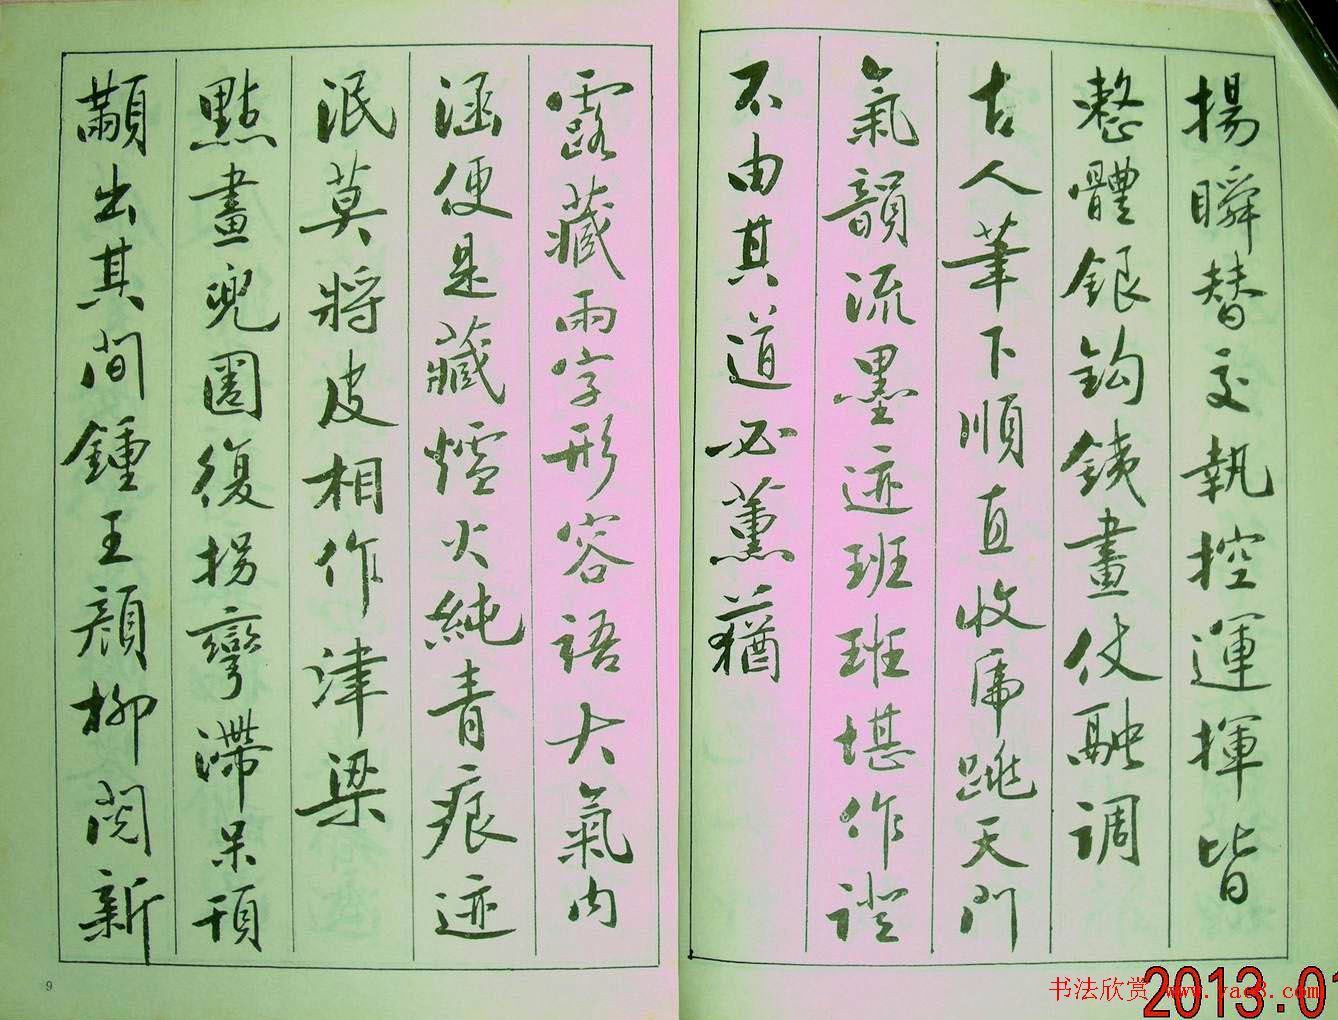 揚瞬替交執控運揮皆
整體銀鈎鐵畫仗融调
古人筆下順直收虎跳天門
氣韻流墨迹班班堪作證
不由其道必薰蕕
露藏兩字形容語大氣内
涵便是藏爐火純青痕迹
泯莫將皮相作津梁
點畫兜圈復拐彎滯呆頑
顢出其間鍾王顔柳閱新
9
书法欣赏 www.yac8.com
2013.01